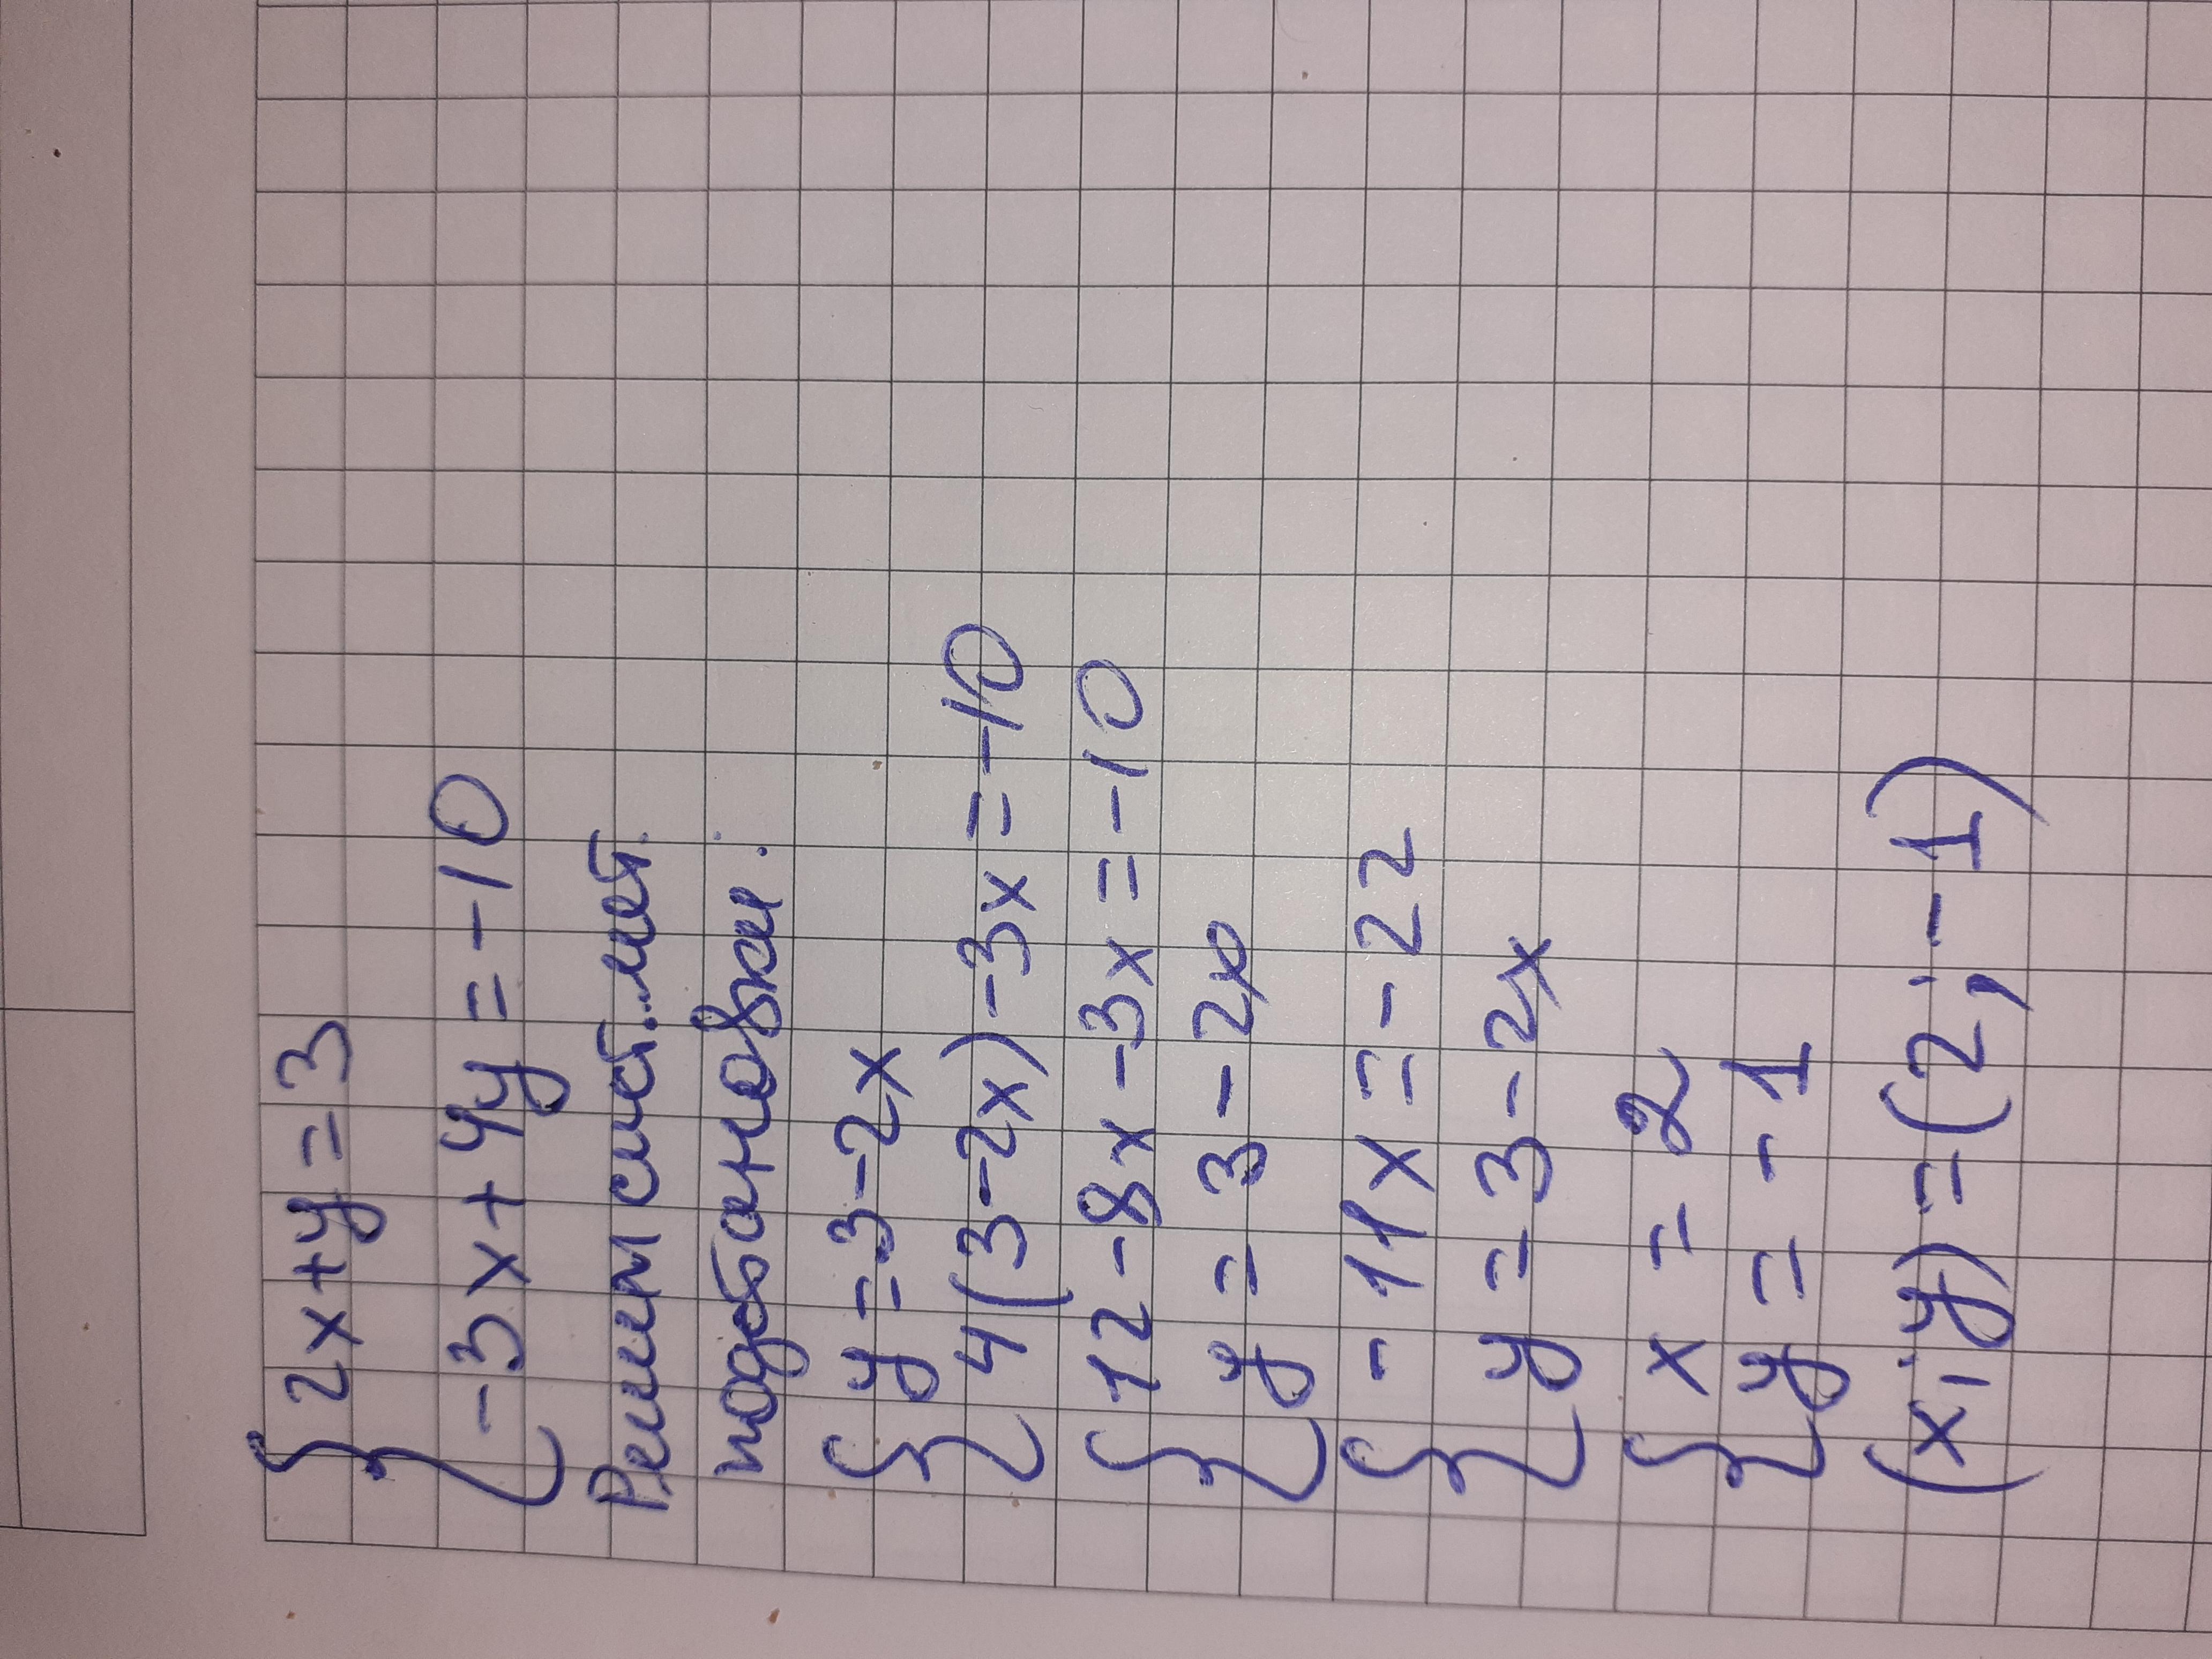 2x+y=3
-3x+4y=-10
Решим сист. мет.
подстановки:
y=3-2x
4(3-2x)-3x=-10
12-8x-3x=-10
y=3-2x
-11x=-22
y=3-2x
x=2
y=-1
(x;y)=(2;-1)